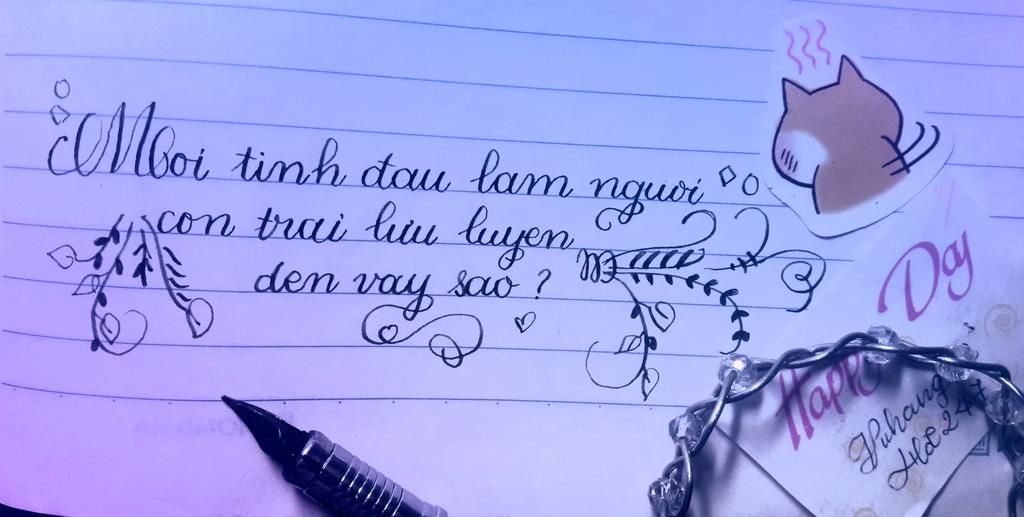 Moi tinh đau lam nguoi
con trai luu luyen
den vay sao?
Happy
Day
Vuhang
Hđ247